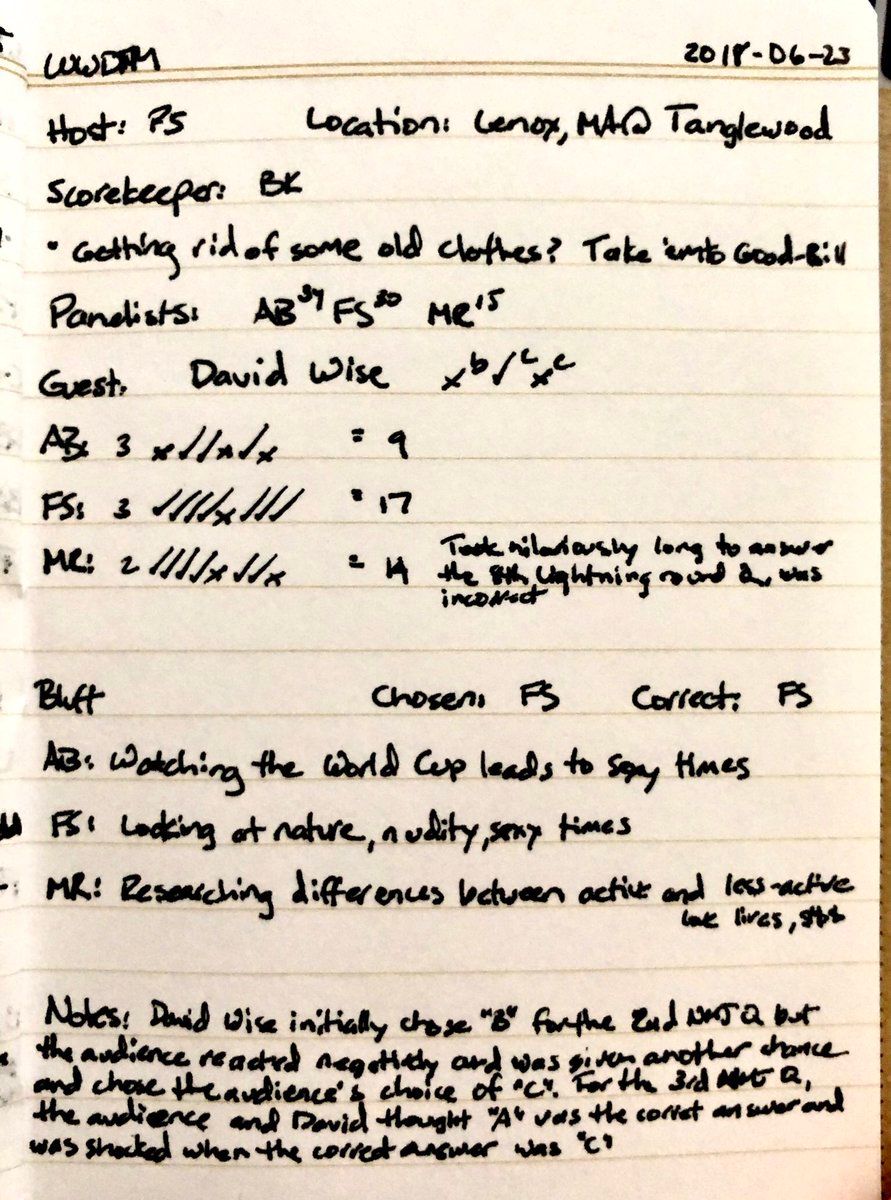 WWDTM 2018-06-23
Host: PS Location: Lenox, MA @ Tanglewood
Scorekeeper: BK
• Getting rid of some old clothes? Take 'em to Good-Bill
Panelists: AB³⁴ FS³⁰ MR¹⁵
Guest: David Wise xᵇ ✓ᶜ xᶜ
AB: 3 x✓✓x✓x = 9
FS: 3 ✓✓✓✓x✓✓✓ = 17
MR: 2 ✓✓✓✓x✓✓x = 14 Took hilariously long to answer
the 8th Lightning round Q, was
incorrect
Bluff Chosen: FS Correct: FS
AB: Watching the World Cup leads to sexy times
FS: Looking at nature, nudity, sexy times
MR: Researching differences between active and less-active
love lives,
Notes: David Wise initially chose "B" for the 2nd NMJ Q but
the audience reacted negatively and was given another chance
and chose the audience's choice of "C". For the 3rd NMJ Q,
the audience and David thought "A" was the correct answer and
was shocked when the correct answer was "C"